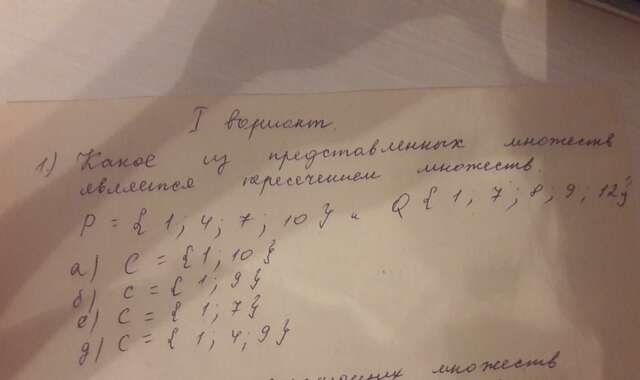 I вариант.
1.) Какое из представленных множеств
является пересечением множеств.
P = { 1; 4; 7; 10 } и Q { 1; 7; 8; 9; 12 }
а) C = { 1; 10 }
б) C = { 1; 9 }
с) C = { 1; 7 }
д) C = { 1; 4; 9 }
множеств